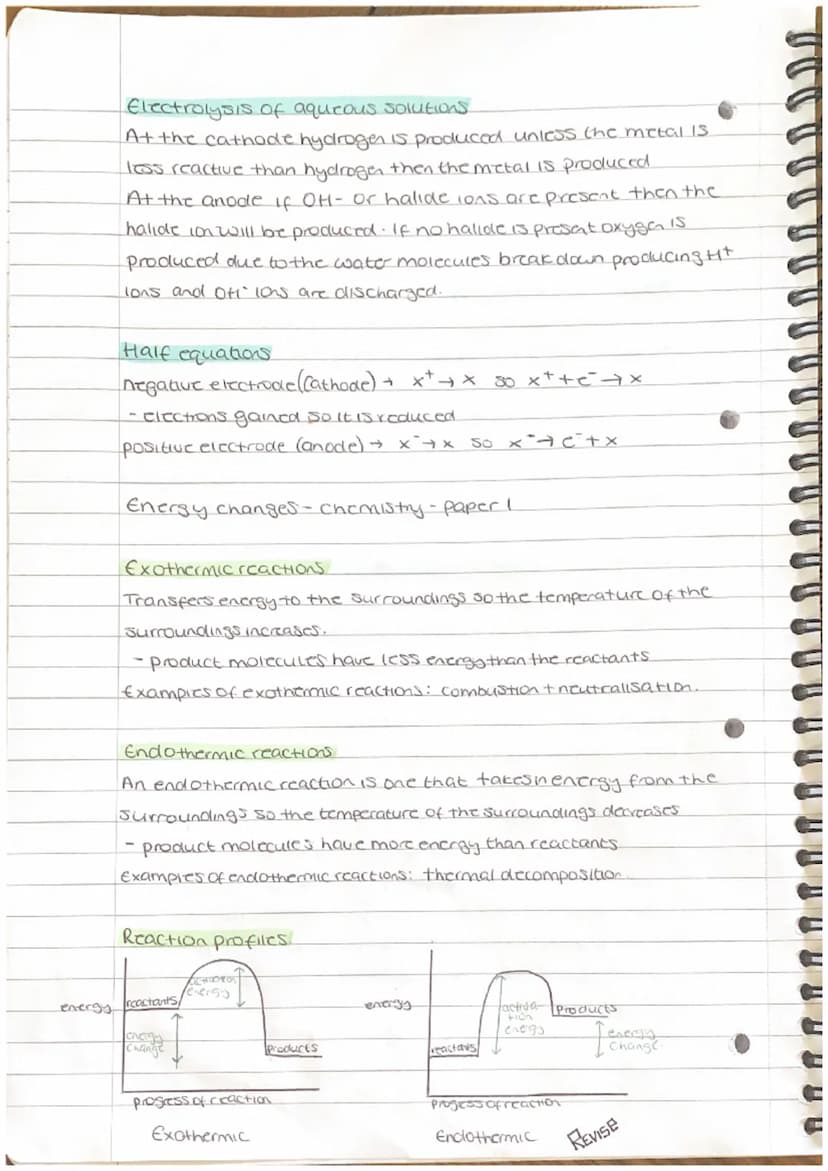 Electrolysis of aqueous solutions
At the cathode hydrogen is produced unless the metal is
less reactive than hydrogen then the metal is produced
At the anode if OH- or halide ions are present then the
halide ion will be produced. If no halide is present oxygen is
produced due to the water molecules break down producing H+
ions and OH- ions are discharged.
Half equations
negative electrode (cathode) → x⁺ → x so x⁺ + e⁻ → x
- electrons gained so it is reduced
positive electrode (anode) → x⁻ → x so x⁻ → e⁻ + x
Energy changes - chemistry - paper 1
Exothermic reactions
Transfers energy to the surroundings so the temperature of the
surroundings increases.
- product molecules have less energy than the reactants
Examples of exothermic reactions: combustion + neutralisation.
Endothermic reactions
An endothermic reaction is one that takes in energy from the
surroundings so the temperature of the surroundings decreases
- product molecules have more energy than reactants
Examples of endothermic reactions: thermal decomposition.
Reaction profiles
energy
reactants
activation
energy
energy
change
products
progress of reaction
Exothermic
energy
reactants
activa
tion
energy
products
energy
change
progess of reaction
Endothermic
REVISE